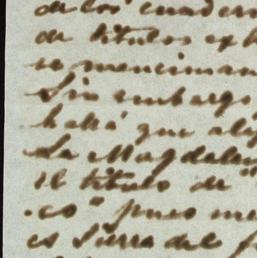 de los cuadern
de titulos exh
se mencionan
Sin embargo
habrá que alg
La Magdalen
el titulo de "
.co" pues me
es Sierra del